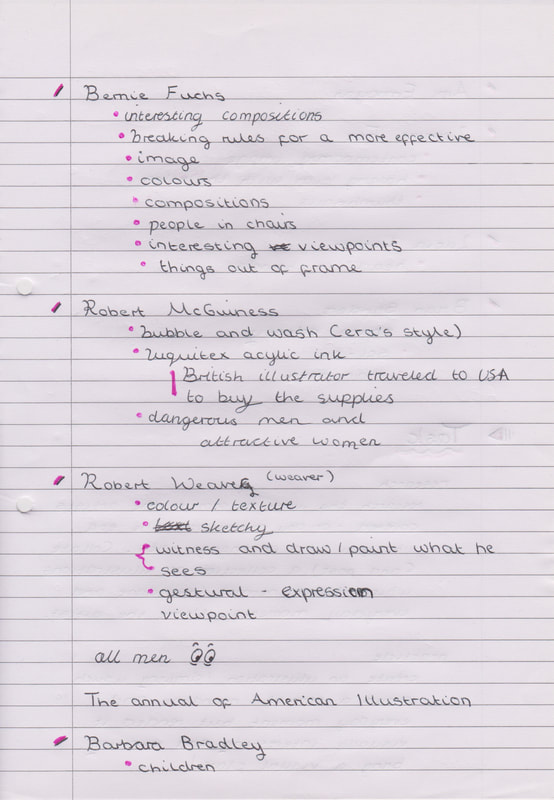 Bernie Fuchs
• interesting compositions
• breaking rules for a more effective
• image
• colours
• compositions
• people in chairs
• interesting viewpoints
• things out of frame
Robert McGuiness
• bubble and wash (era's style)
• Liquitex acylic ink
British illustrator traveled to USA
to buy the supplies
• dangerous men and
attractive women
Robert Weaver (weaver)
• colour / texture
• sketchy
witness and draw / paint what he
sees
• gestural - expression
viewpoint
all men
The annual of American Illustration
Barbara Bradley
• children